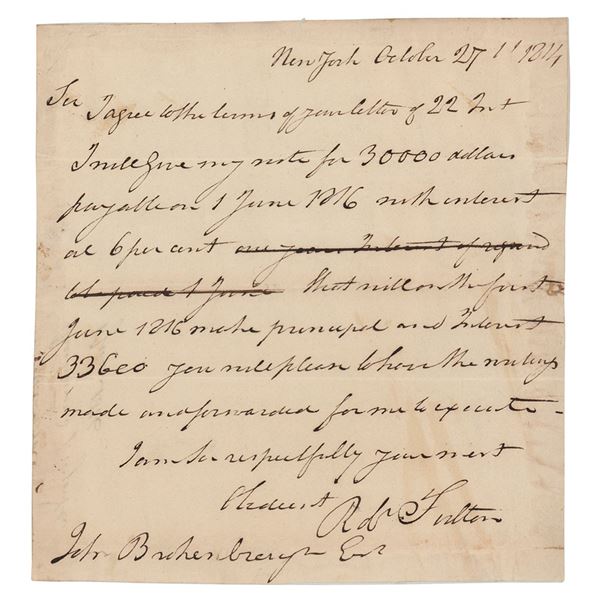 New York October 27th 1814
Sir
I agree to the terms of your letter of 22 Inst
I will give my note for 30000 dollars
payable on 1 June 1816 with interest
at 6 per cent one year Interest
to be paid 1 June that will on the first
June 1816 make principal and Interest
33600 you will please to have the writings
made and forwarded for me to execute –
I am Sir respectfully your most
Obedient
Robt Fulton
John Brokenbrough Esqr